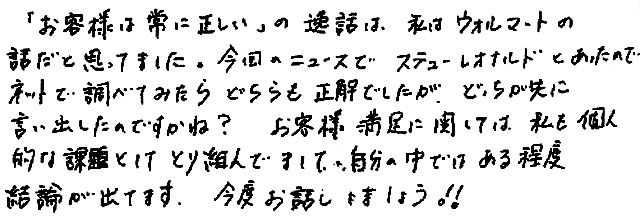 「お客様は常に正しい」の逸話は、私はウォルマートの
話だと思ってました。今回のニュースで ステューレオナルドとあったので
ネットで調べてみたら どちらも正解でしたが、どっちが先に
言い出したのですかね？ お客様満足に関しては 私も個人
的な課題として とり組んでまして、自分の中では ある程度
結論が出てます。 今度お話ししましょう!!